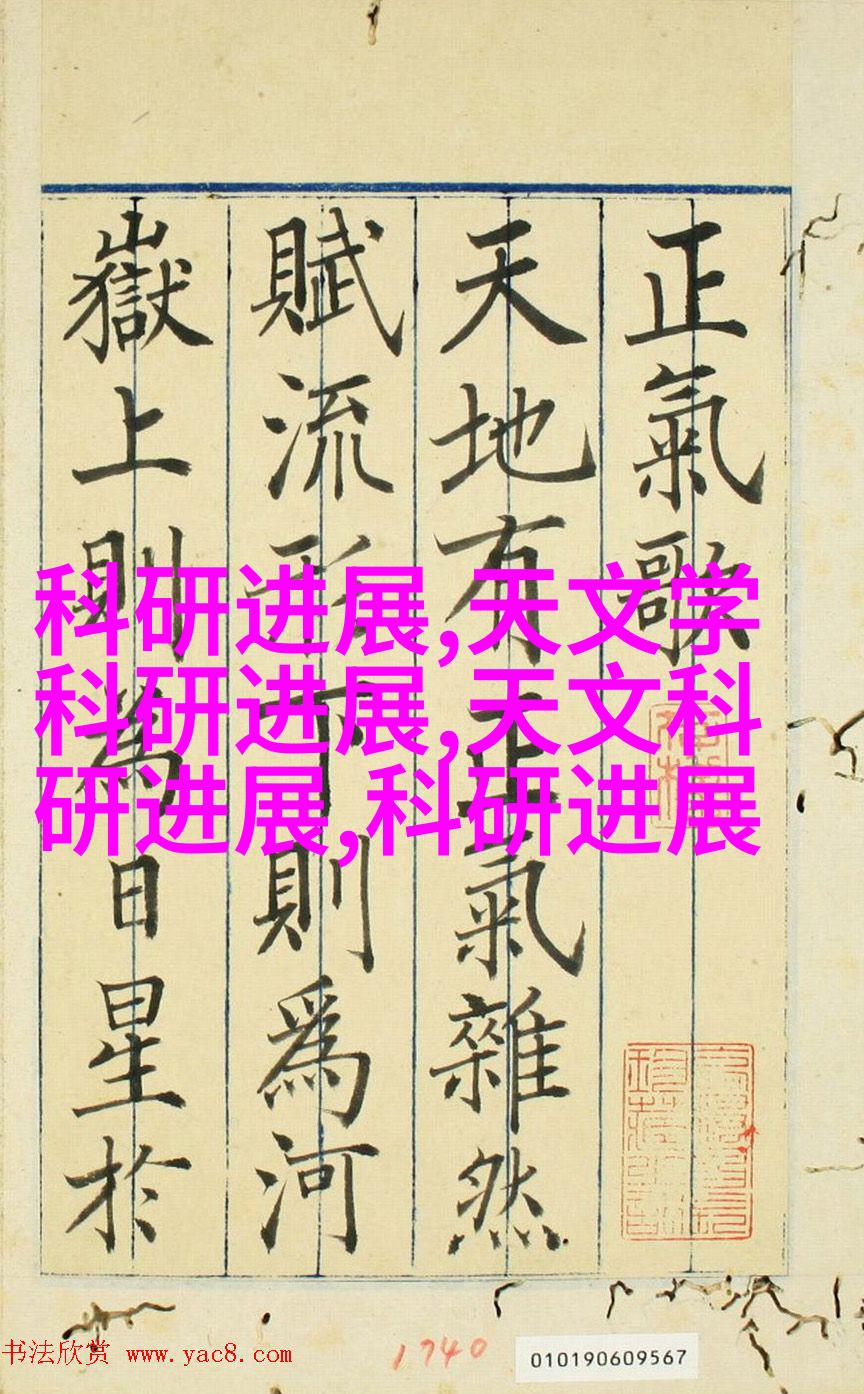 正氣歌
天地有正氣雜然
賦流形下則為河
嶽上則為日星於
科研进展,天文学
科研进展,天文科
研进展,科研进展
书法欣赏 www.yac8.com
1740
010190609567